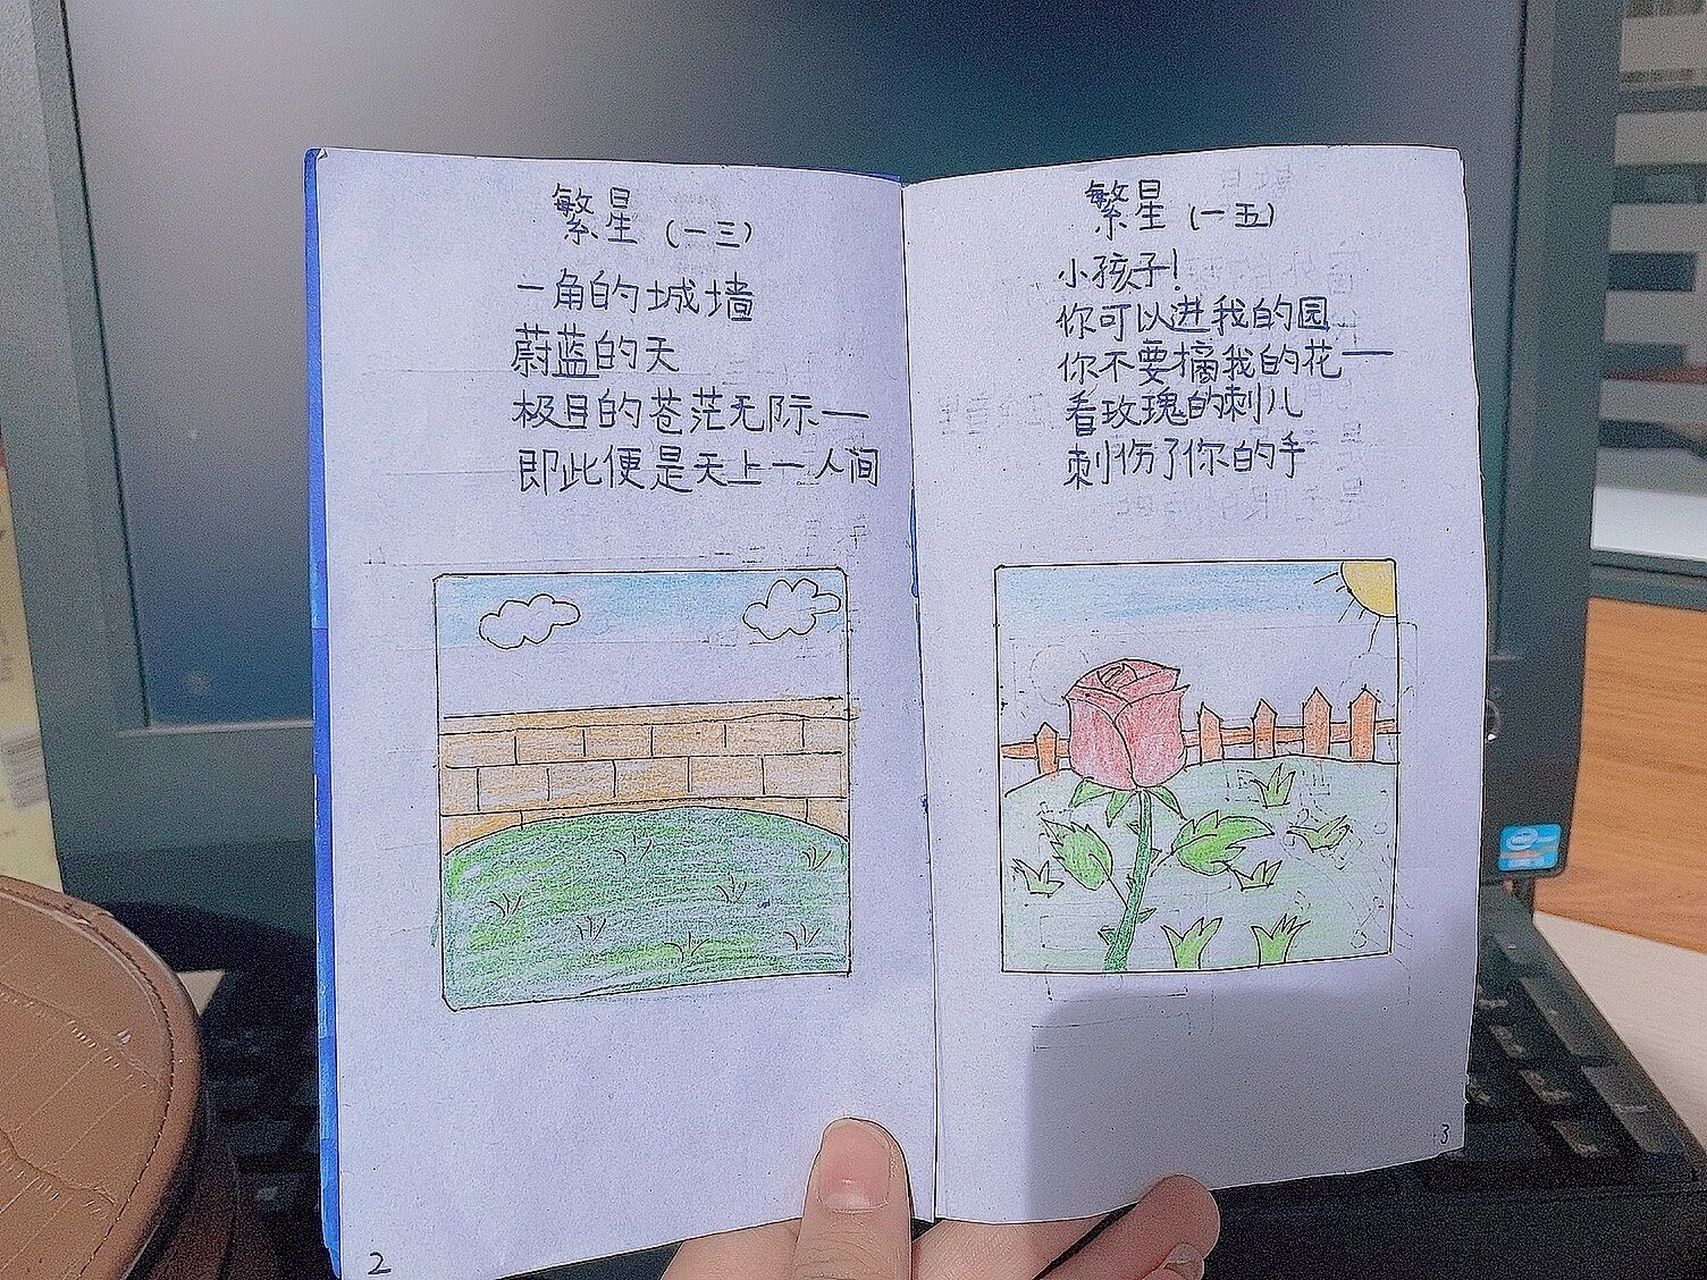 繁星(一三)
一角的城墙
蔚蓝的天
极目的苍茫无际——
即此便是天上一人间
2
繁星(一五)
小孩子!
你可以进我的园
你不要摘我的花——
看玫瑰的刺儿
刺伤了你的手
3